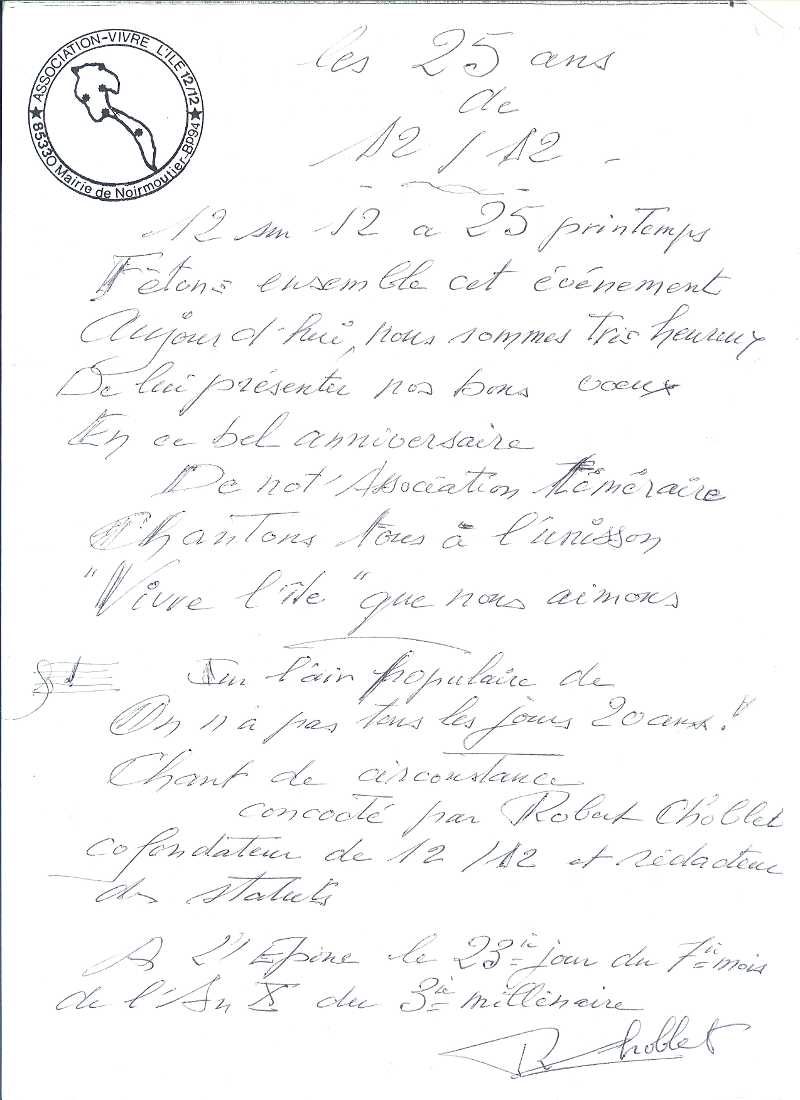 ASSOCIATION-VIVRE L'ILE 12/12
★ 85330 Mairie de Noirmoutier-BP94 ★
les 25 ans
de
12 / 12
12 sur 12 a 25 printemps
Fêtons ensemble cet événement
Aujourd'hui, nous sommes très heureux
De lui présenter nos bons voeux
En ce bel anniversaire
De not' Association téméraire
Chantons tous à l'unisson
"Vivre l'île" que nous aimons
Sur l'air populaire de
On n'a pas tous les jours 20 ans !
Chant de circonstance
concocté par Robert Choblet
cofondateur de 12/12 et rédacteur
des statuts
A L'Epine le 23ie jour du 7ie mois
de l'An X du 3ie millénaire
R Choblet